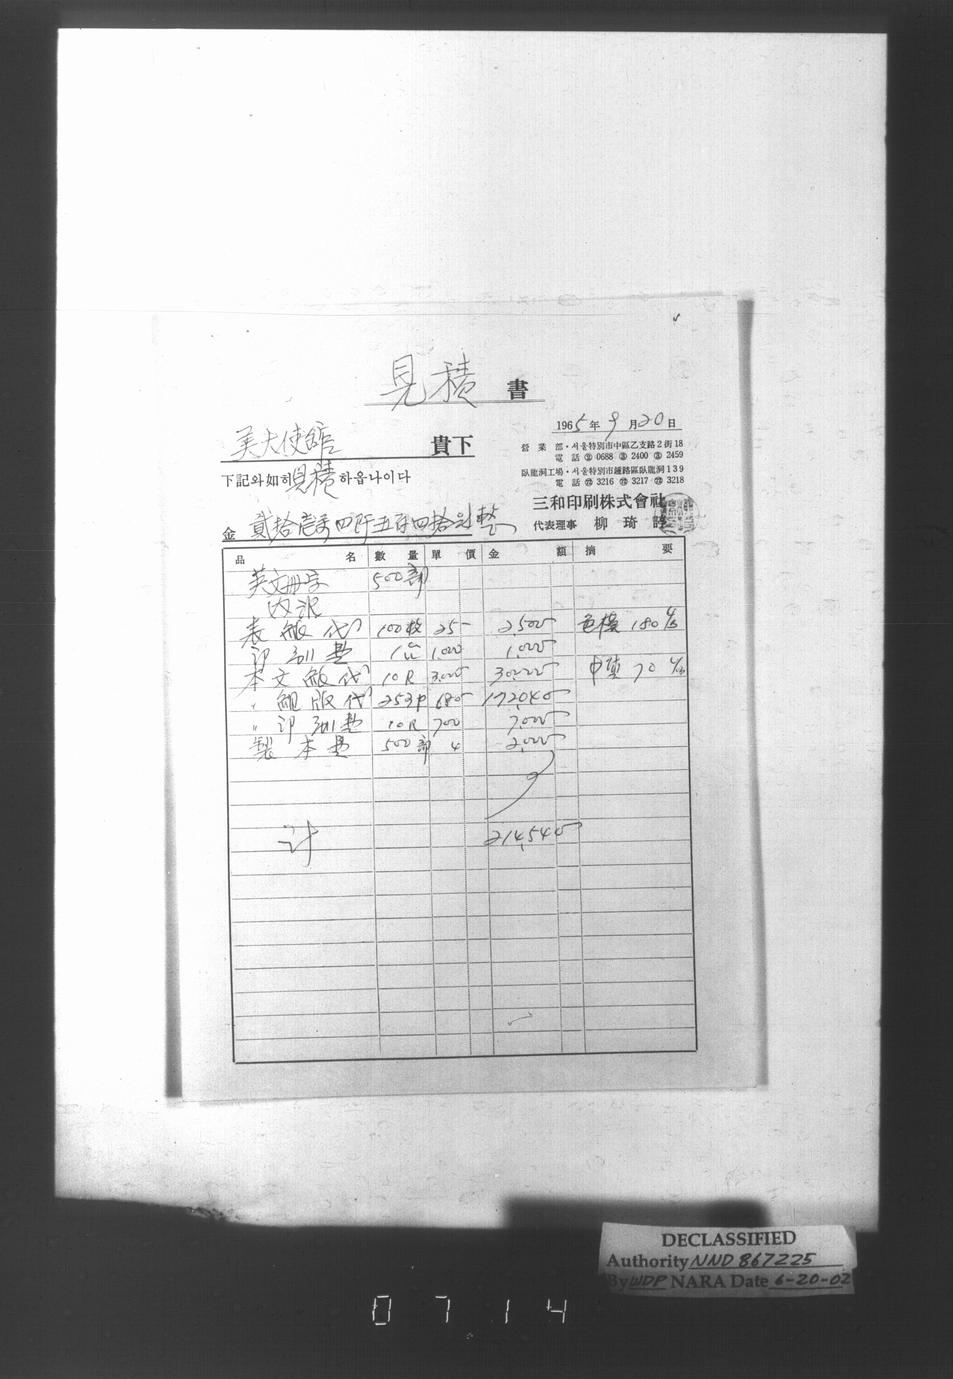 見積書
1965年9月20日
美大使館 貴下
營業部・서울特別市中區乙支路2街18
電話 ② 0688 ② 2400 ② 2459
臥龍洞工場・서울特別市鍾路區臥龍洞139
電話 ⑫ 3216 ⑫ 3217 ⑫ 3218
下記와如히見積하옵나이다
三和印刷株式會社
代表理事 柳琦諄
金 貳拾壹萬四阡五百四拾원整
品名 數量 單價 金額 摘要
英文冊子 500部
內訳
表紙代 100枚 25- 2,500- 色模 180
印刷費 1,000 1,000-
本文紙代 10R 3,000- 30,000- 中質 70
〃 組版代 253P 680- 172,040-
〃 印刷費 10R 700 7,000-
製本費 500部 4 2,000-
計 214,540-
DECLASSIFIED
Authority NND 867225
By WDP NARA Date 6-20-02
0714